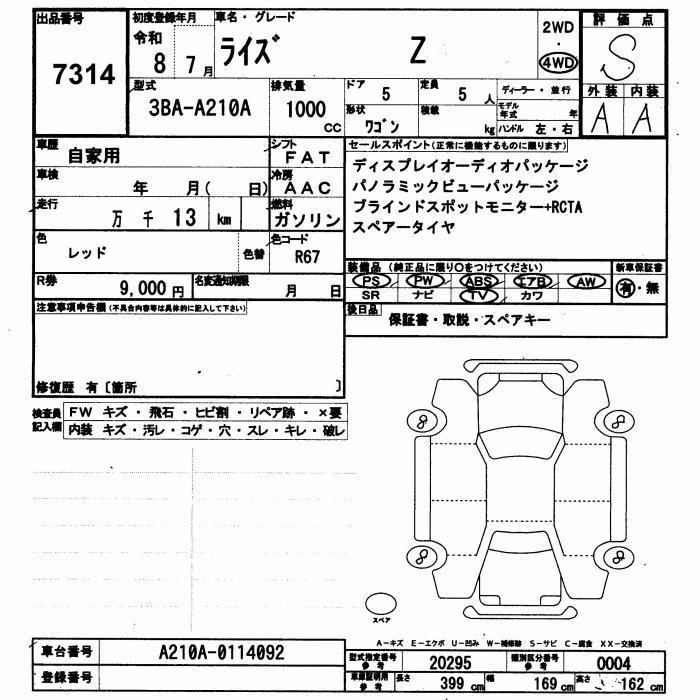 出品番号 初度登録年月 車名・グレード 2WD 評価点
7314 令和 8 7月 ライズ Z 4WD S
型式 排気量 ドア 定員 ディーラー・並行 外装 内装
3BA-A210A 1000 CC 5 5人 モデル年式 年 A A
形状 ワゴン 積載 kg ハンドル 左・右
車歴 自家用 シフト FAT セールスポイント(正常に機能するものに限ります)
車検 年 月( 日) 冷房 AAC ディスプレイオーディオパッケージ
走行 万 千 13 km 燃料 ガソリン パノラミックビューパッケージ
ブラインドスポットモニター+RCTA
スペアータイヤ
色 レッド 色替 色コード R67
R券 9,000円 名変通知期限 月 日 装備品(純正品に限り○をつけてください) 新車保証書
PS PW ABS エアB AW 有・無
SR ナビ TV カワ
注意事項申告欄(不具合内容等は具体的に記入して下さい) 後日品 保証書・取説・スペアキー
修復歴 有〔箇所 〕
検査員記入欄 FW キズ・飛石・ヒビ割・リペア跡・×要
内装 キズ・汚レ・コゲ・穴・スレ・キレ・破レ
8 8
8 8
スペア
A-キズ E-エクボ U-凹み W-補修跡 S-サビ C-腐食 XX-交換済
車台番号 A210A-0114092 型式指定番号参考 20295 類別区分番号参考 0004
登録番号 車庫証明用参考 長さ 399cm 幅 169cm 高さ 162cm